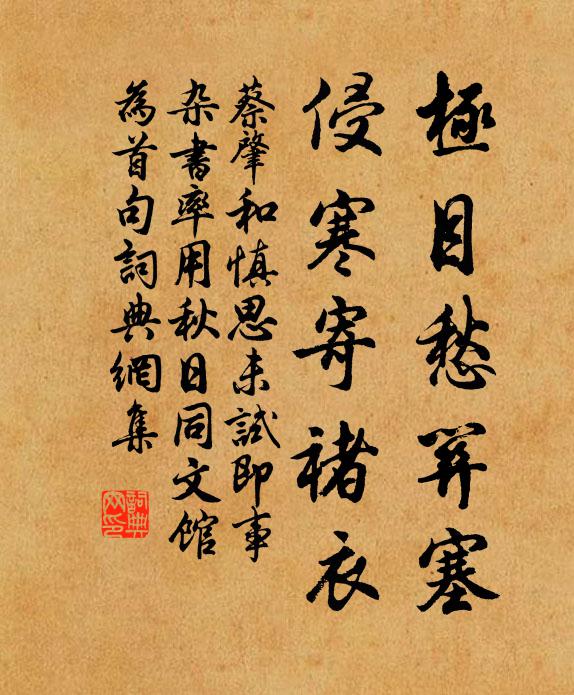 極目愁關塞
侵寒寄褚衣
蔡肇和慎思未試即事
杂書率用秋日同文館
為首句詞典網集
詞典
网印